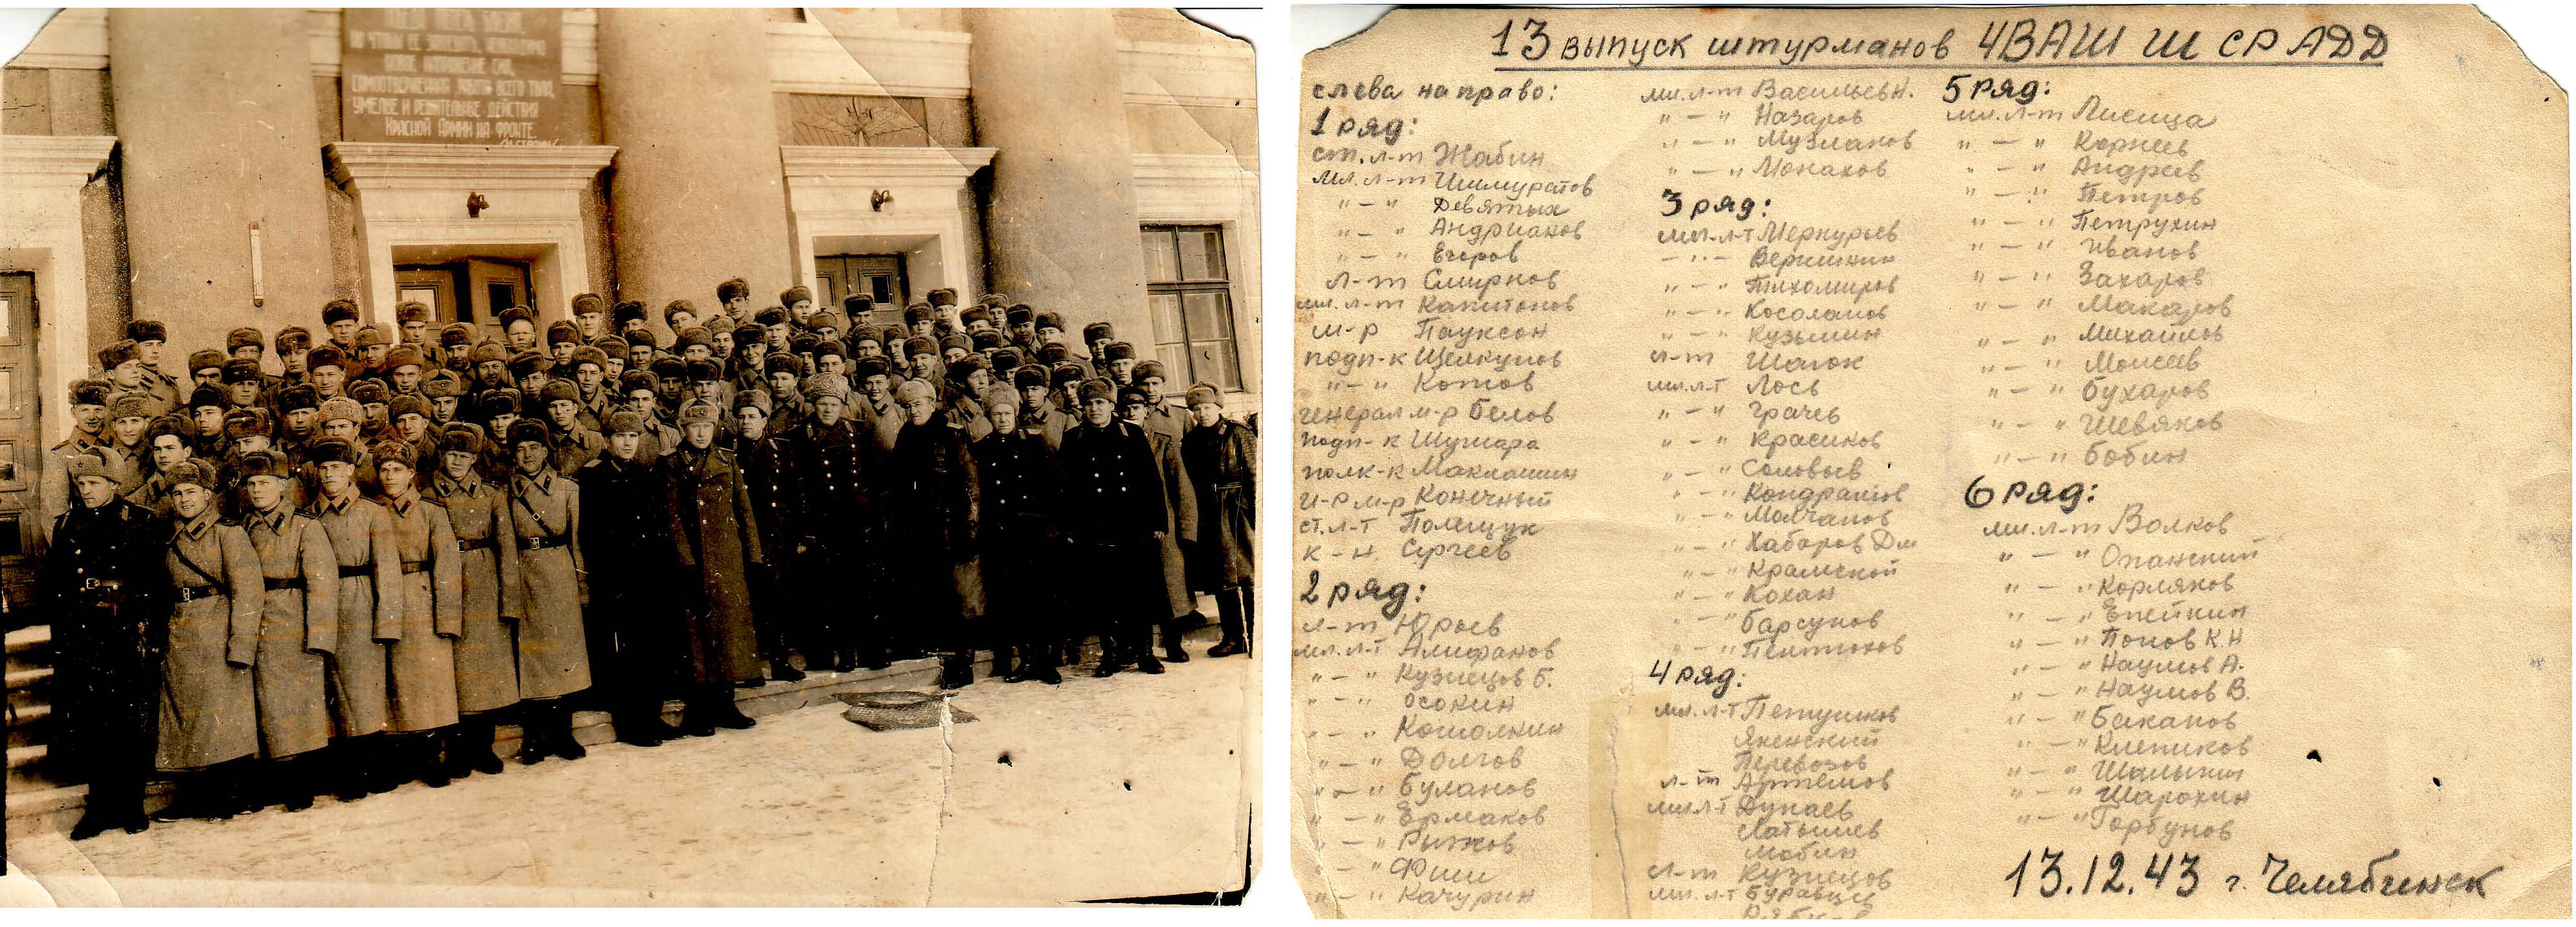 но чтобы ее завоевать, необходимо
новое напряжение сил,
самоотверженная работа всего тыла,
умелые и решительные действия
Красной Армии на фронте.
13 выпуск штурманов ЧВАШ Ш СР АДД
слева направо:
1 ряд:
ст. л-т Жабин
мл. л-т Шимуратов
" — " Девятых
" — " Андриаков
" — " Егоров
л-т Смирнов
мл. л-т Капитонов
м-р Пауксон
подп-к Щелкунов
" — " Котов
генерал м-р Белов
подп-к Шушара
полк-к Маклашин
и-р м-р Конечный
ст. л-т Полещук
к-н Сергеев
2 ряд:
л-т Юрьев
мл. л-т Алифанов
" — " Кузнецов Б.
" — " Осокин
" — " Кошолкин
" — " Долгов
" — " Буланов
" — " Ермаков
" — " Рыжов
" — " Фиш
" — " Качурин
мл. л-т Васильев Н.
" — " Назаров
" — " Музланов
" — " Монахов
3 ряд:
мл. л-т Меркурьев
" — " Веришкин
" — " Тихомиров
" — " Косолапов
" — " Кузьмин
л-т Шагок
мл. л-т Лось
" — " Грачев
" — " Красиков
" — " Соловьев
" — " Кондрашов
" — " Молчанов
" — " Хабаров Дм
" — " Крамской
" — " Кохан
" — " Барсуков
" — " Пентюхов
4 ряд:
мл. л-т Петушков
Яненский
Перевозов
л-т Артемов
мл. л-т Дунаев
Латышев
Мобин
л-т Кузнецов
мл. л-т Буравцев
5 ряд:
мл. л-т Лисица
" — " Корнеев
" — " Андреев
" — " Петров
" — " Петрухин
" — " Иванов
" — " Захаров
" — " Макаров
" — " Михайлов
" — " Моисеев
" — " Бухаров
" — " Шевяков
" — " Бобин
6 ряд:
мл. л-т Волков
" — " Опанский
" — " Корляков
" — " Епейкин
" — " Попов К Н
" — " Наумов А.
" — " Наумов В.
" — " Баканов
" — " Клепиков
" — " Шалыгин
" — " Шарохин
" — " Горбунов
13.12.43 г. Челябинск